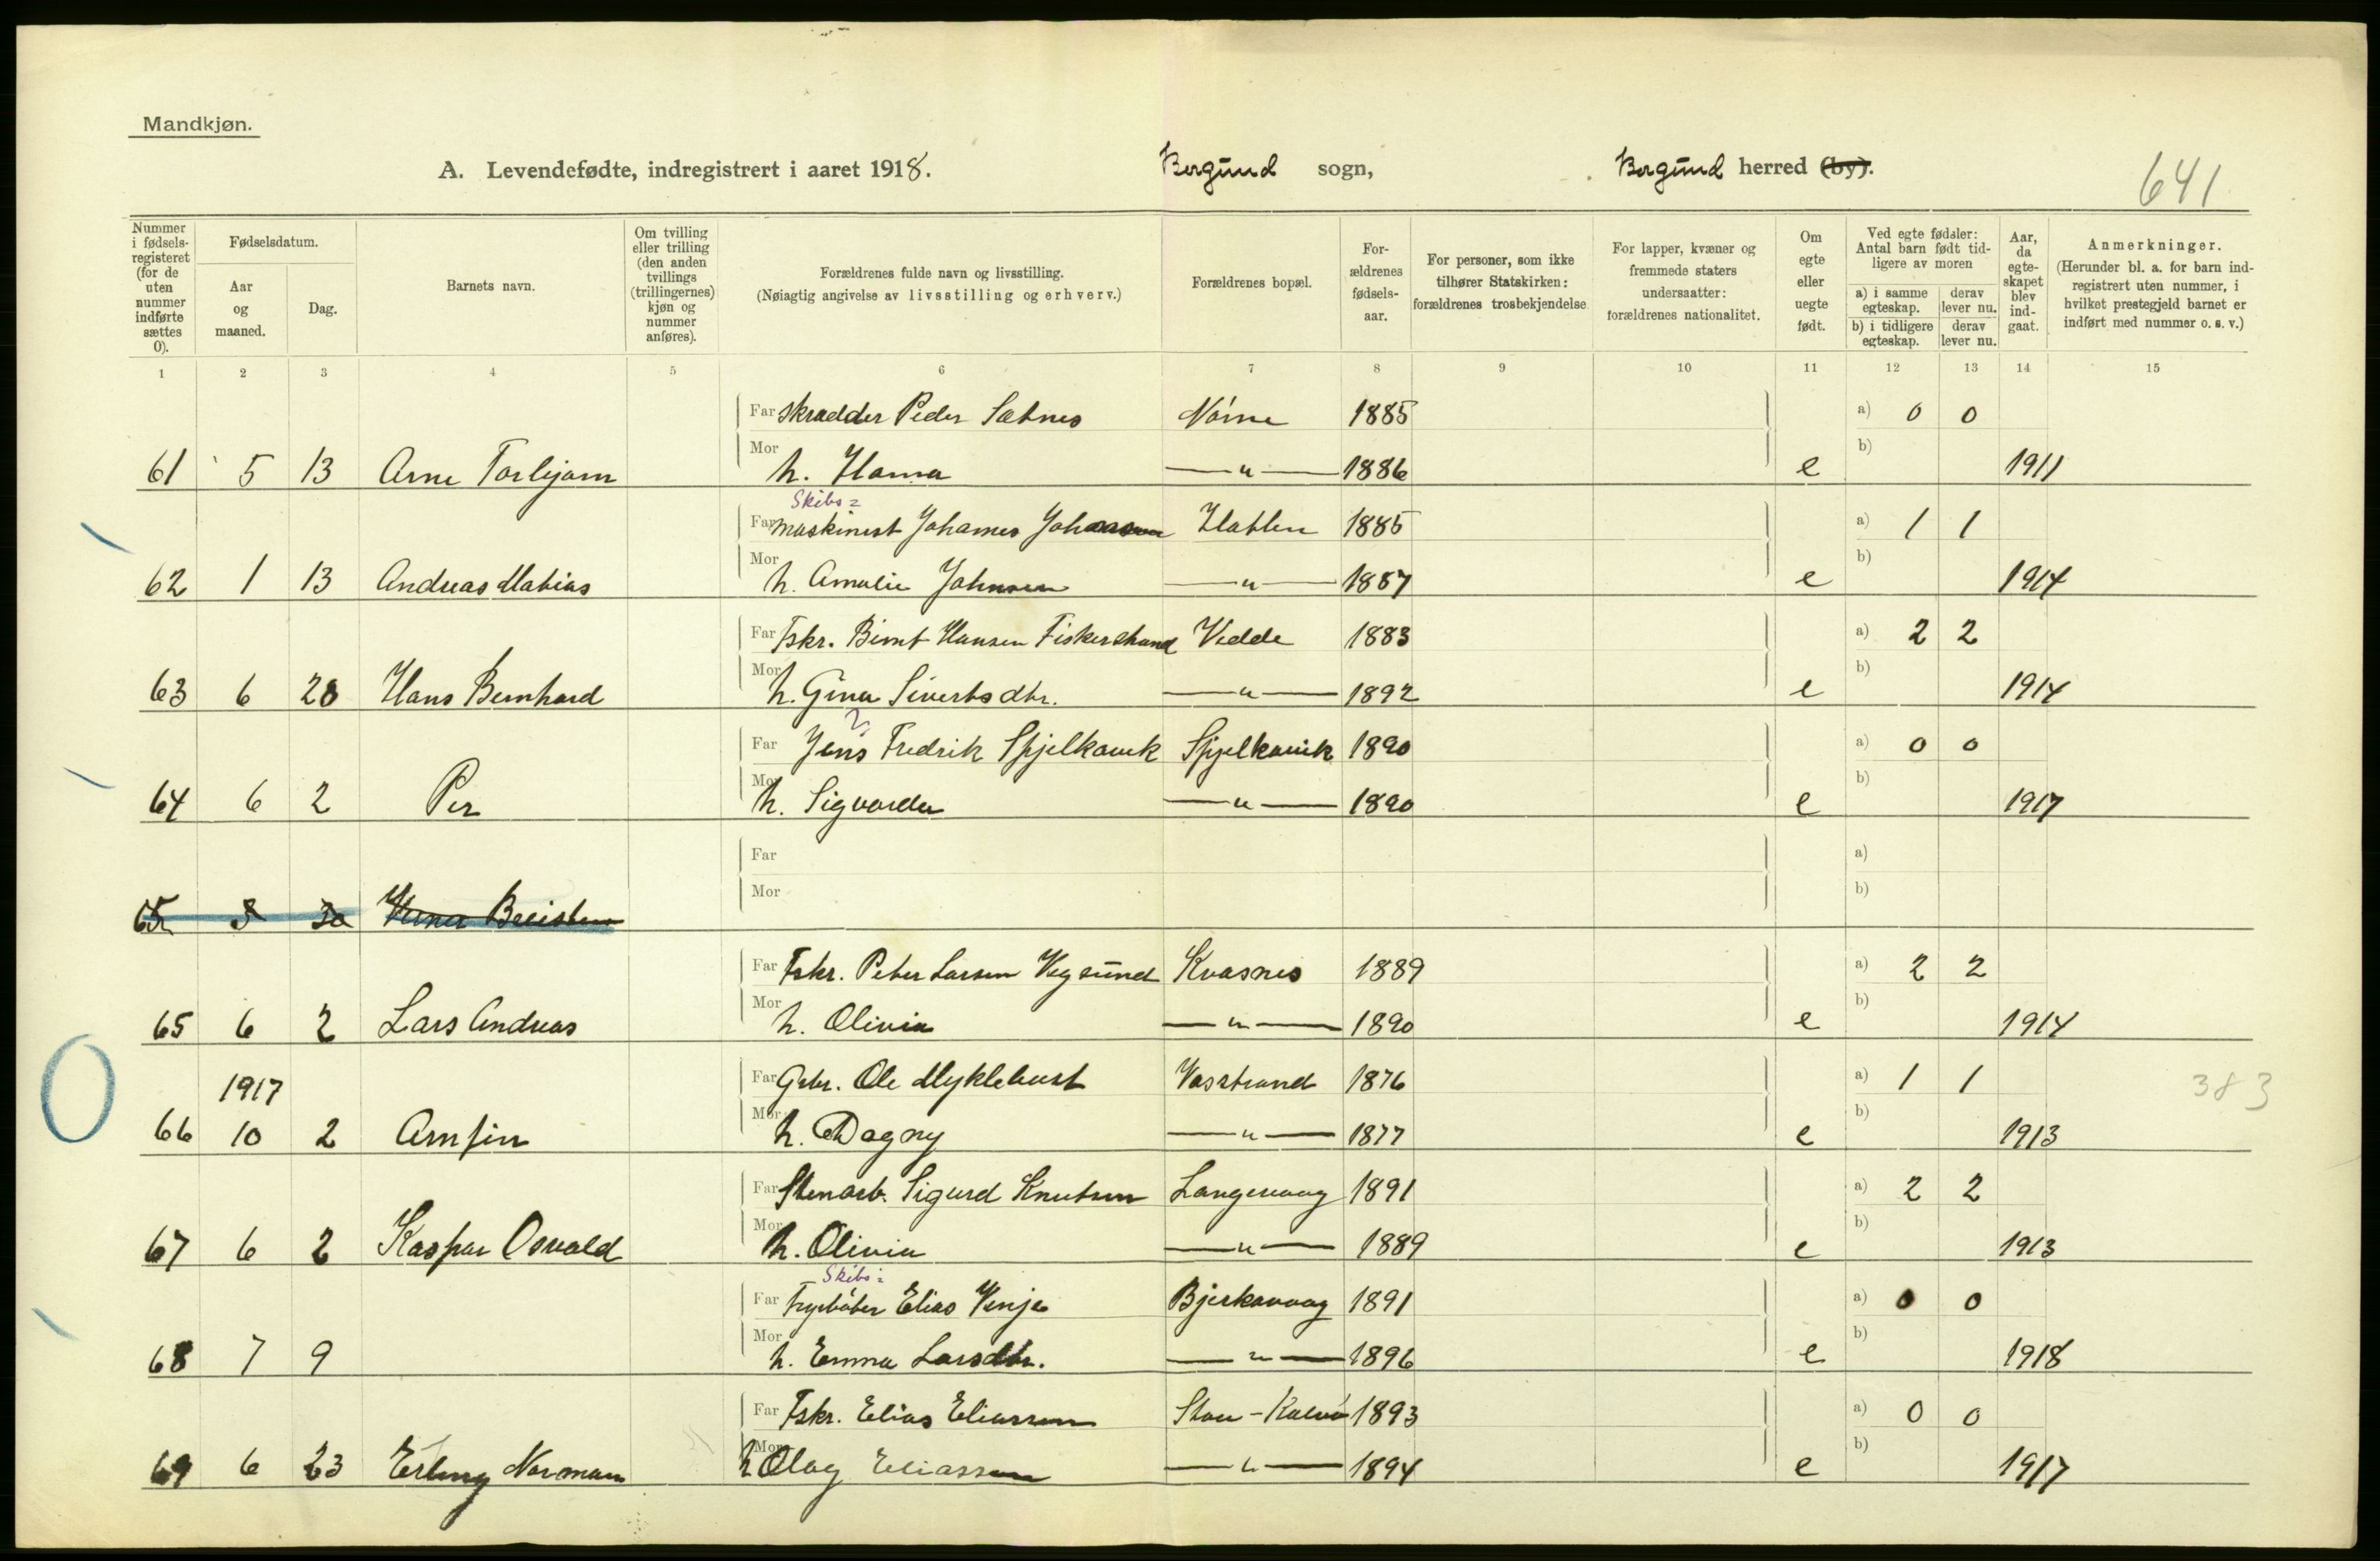 Mandkjøn.
A. Levendefødte, indregistrert i aaret 1918. Borgund sogn, Borgund herred (by).
641
Nummer i fødselsregisteret (for de uten nummer indførte sættes 0).
Fødselsdatum.
Aar og maaned.
Dag.
Barnets navn.
Om tvilling eller trilling (den anden tvillings (trillingernes) kjøn og nummer anføres).
Forældrenes fulde navn og livsstilling.
(Nøiagtig angivelse av livsstilling og erhverv.)
Forældrenes bopæl.
Forældrenes fødselsaar.
For personer, som ikke tilhører Statskirken: forældrenes trosbekjendelse
For lapper, kvæner og fremmede staters undersaatter: forældrenes nationalitet.
Om egte eller uegte født.
Ved egte fødsler: Antal barn født tidligere av moren
a) i samme egteskap. derav lever nu.
b) i tidligere egteskap. derav lever nu.
Aar, da egteskapet blev indgaat.
Anmerkninger.
(Herunder bl. a. for barn indregistrert uten nummer, i hvilket prestegjeld barnet er indført med nummer o. s. v.)
1 2 3 4 5 6 7 8 9 10 11 12 13 14 15
Far Skrædder Peder Sætnes Nørve 1885 a) 0 0
61 5 13 Arne Torbjørn Mor h. Hanna —"— 1886 e b) 1911
Skibs=
Far maskinist Johannes Johnsen Hatlen 1885 a) 1 1
62 1 13 Andreas Matias Mor h. Amalie Johnsen —"— 1887 e b) 1914
Far Fskr. Bernt Hansen Fiskerstrand Vedde 1883 a) 2 2
63 6 28 Hans Bernhard Mor h. Gina Sivertsdtr. —"— 1892 e b) 1914
Far Jens Fredrik Spjelkavik Spjelkavik 1890 a) 0 0
64 6 2 Per Mor h. Sigvarda —"— 1890 e b) 1917
Far a)
65 5 30 Mor b)
Far Fskr. Peter Larsen Vegsund Kvasnes 1889 a) 2 2
65 6 2 Lars Andreas Mor h. Olivia —"— 1890 e b) 1914
1917 Far Gbr. Ole Myklebust Vasstrand 1876 a) 1 1 383
66 10 2 Arnfin Mor h. Dagny —"— 1877 e b) 1913
Far Stenarb. Sigurd Knutsen Langevaag 1891 a) 2 2
67 6 2 Kaspar Osvald Mor h. Olivia —"— 1889 e b) 1913
Skibs=
Far Fyrbøter Elias Venje Bjerkavaag 1891 a) 0 0
68 7 9 Mor h. Emma Larsdtr. —"— 1896 e b) 1918
Far Fskr. Elias Eliassen Stor-Kalvø 1893 a) 0 0
69 6 23 Erling Norman Mor h Olag Eliassen —"— 1894 e b) 1917